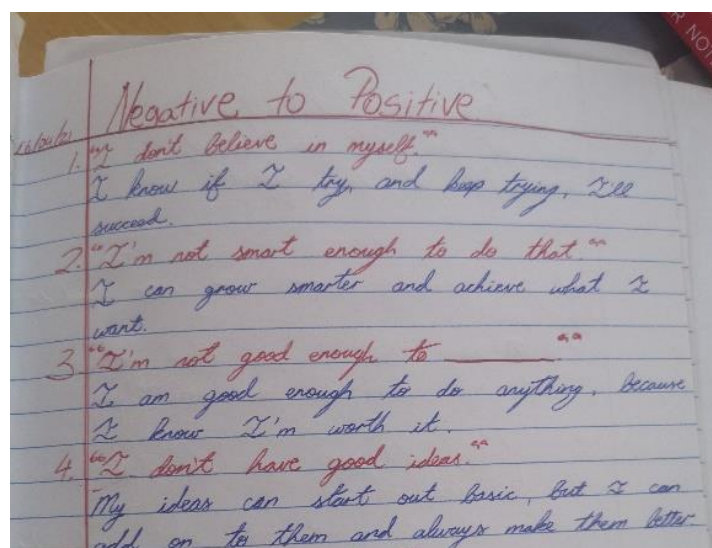 R NOT
Negative to Positive
1. "I don't believe in myself."
I know if I try, and keep trying, I'll
succeed.
2. "I'm not smart enough to do that."
I can grow smarter and achieve what I
want.
3 "I'm not good enough to ______."
I am good enough to do anything, because
I know I'm worth it.
4. "I don't have good ideas."
My ideas can start out basic, but I can
add on to them and always make them better.